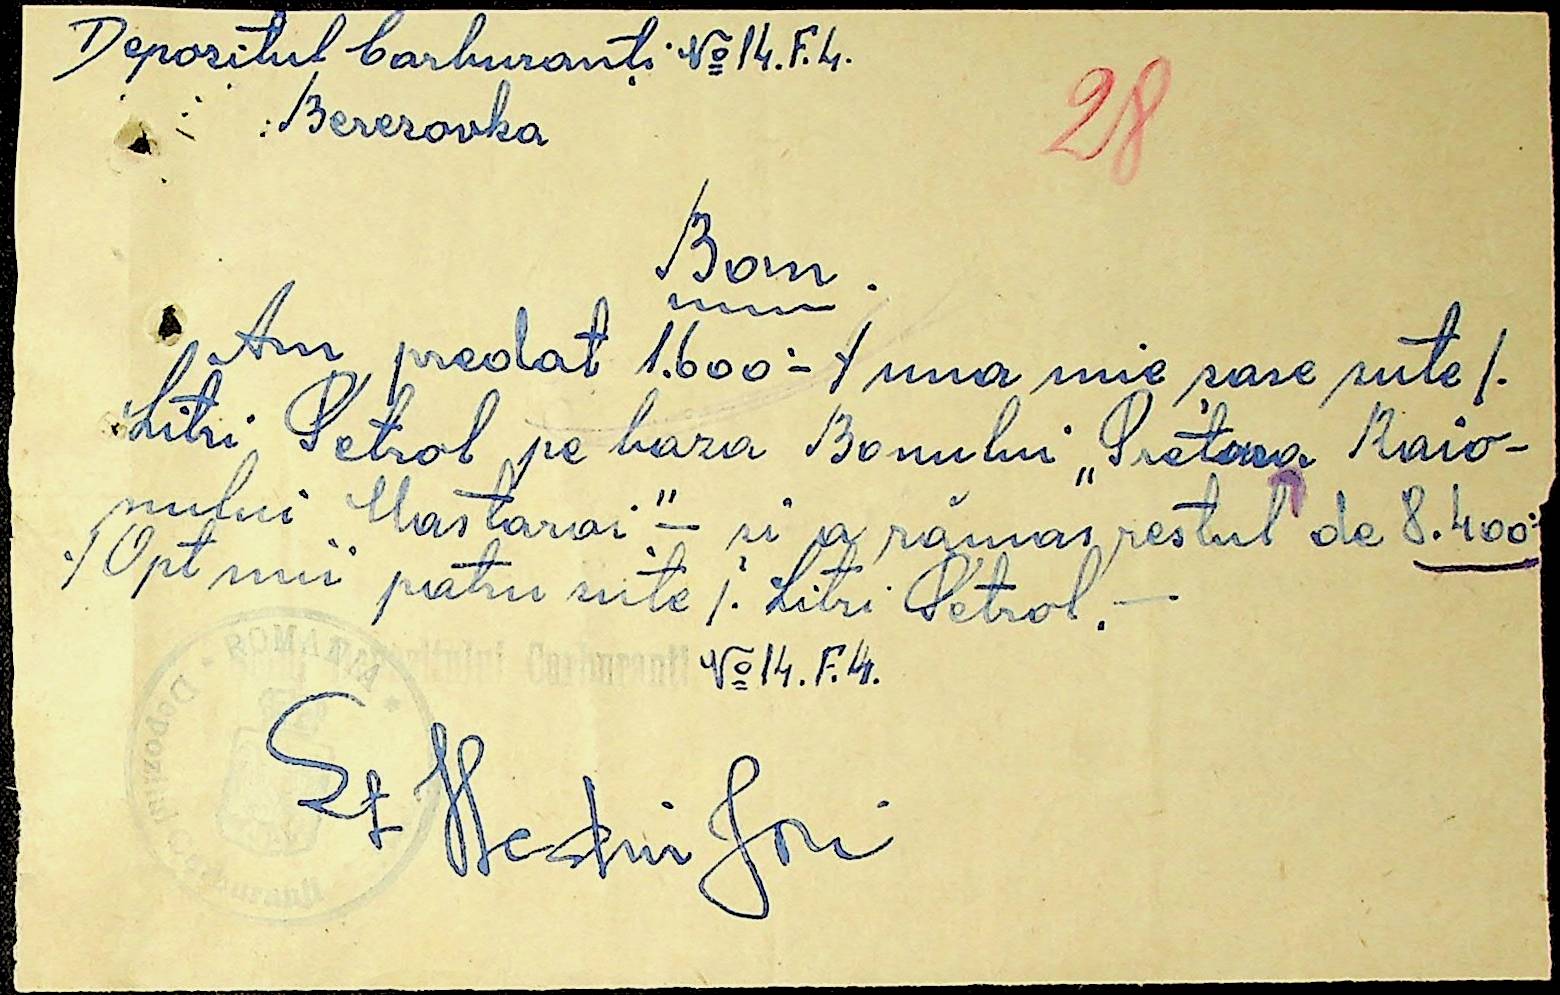 Depozitul Carburanți № 14. F.4.
Berezovka
28
Bon.
Am predat 1.600:- ./ una mie șase sute /.
Litri Petrol pe baza Bonului „Pretura Raio-
nului Mastavoi" — și a rămas restul de 8.400:-
./ Opt mii patru sute /. Litri Petrol. —
Depozitului Carburanți № 14. F.4.
ROMANIA * Depozitul Carburanți